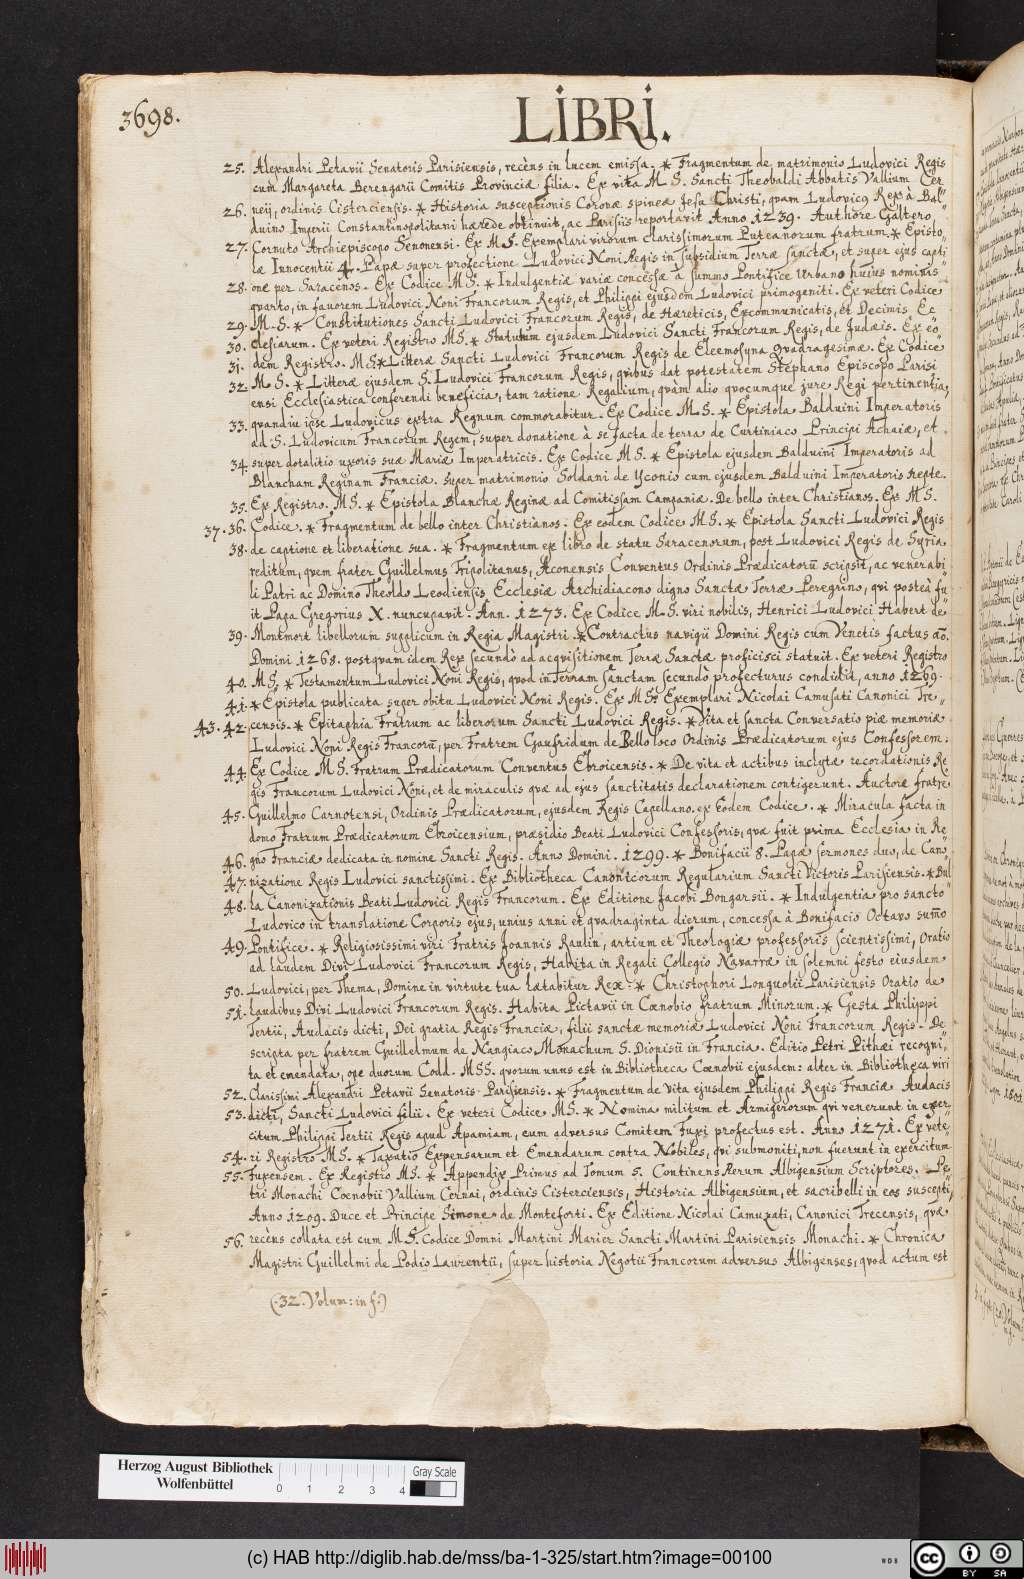 3698.
LIBRI.
25. Alexandri Petavii Senatoris Parisiensis, recèns in lucem emissa. * Fragmentum de matrimonio Ludovici Regis
cum Margareta Berengarii Comitis Provinciæ filia. Ex vita M S. Sancti Theobaldi Abbatis Vallium Cer„
26. neij, ordinis Cisterciensis. * Historia susceptionis Coronæ spineæ Jesu Christi, quam Ludovicus Rex à Bal„
duino Imperii Constantinopolitani hærede obtinuit, ac Parisiis reportavit Anno 1239. Authore Galtero
27. Cornuto Archiepiscopo Senonensi. Ex M S. Exemplari virorum clarissimorum Puteanorum fratrum. * Episto„
læ Innocentii 4. Papæ super profectione Ludovici Noni Regis in subsidium Terræ sanctæ, et super ejus capti
28. one per Saracenos. Ex Codice M S. * Indulgentiæ variæ concessæ à summo Pontifice Urbano hujus nominis
quarto, in favorem Ludovici Noni Francorum Regis, et Philippi ejusdem Ludovici primogeniti. Ex veteri Codice
29. M. S. * Constitutiones Sancti Ludovici Francorum Regis, de Hæreticis, Excommunicatis, et Decimis Ec
30. clesiarum. Ex veteri Registro MS. * Statutum ejusdem Ludovici Sancti Francorum Regis, de Judæis. Ex eo„
31. dem Registro. MS. * Litteræ Sancti Ludovici Francorum Regis de Eleemosyna quadragesimæ. Ex Codice
32. M S. * Litteræ ejusdem S. Ludovici Francorum Regis, quibus dat potestatem Stephano Episcopo Parisi
ensi Ecclesiastica conferendi beneficia, tam ratione Regalium, quàm alio quocumque jure Regi pertinentia,
33. quandiu ipse Ludovicus extra Regnum commorabitur. Ex Codice M S. * Epistola Balduini Imperatoris
ad S. Ludovicum Francorum Regem, super donatione à se facta de terra de Curtiniaco Principi Achaiæ, et
34. super dotalitio uxoris suæ Mariæ Imperatricis. Ex Codice M S. * Epistola ejusdem Balduini Imperatoris ad
Blancham Reginam Franciæ. super matrimonio Soldani de Yconio cum ejusdem Balduini Imperatoris nepte.
35. Ex Registro. MS. * Epistola Blanchæ Reginæ ad Comitissam Campaniæ. De bello inter Christianos. Ex M S.
37. 36. Codice. * Fragmentum de bello inter Christianos. Ex eodem Codice M S. * Epistola Sancti Ludovici Regis
38. de captione et liberatione sua. * Fragmentum ex libro de statu Saracenorum, post Ludovici Regis de Syria
reditum, quem frater Guillelmus Tripolitanus, Aconensis Conventus Ordinis Prædicatorū scripsit, ac venerabi
li Patri ac Domino Theoldo Leodiensis Ecclesiæ Archidiacono digno Sanctæ Terræ Peregrino, qui posteà fu
it Papa Gregorius X. nuncupavit. Ann. 1273. Ex Codice M.S. viri nobilis, Henrici Ludovici Habert de
39. Montmort libellorum supplicum in Regia Magistri. * Contractus navigii Domini Regis cum Venetis factus aō.
Domini 1268. postquam idem Rex secundò ad acquisitionem Terræ Sanctæ proficisci statuit. Ex veteri Registro
40. M S. * Testamentum Ludovici Noni Regis, quod in Terram sanctam secundò profecturus condidit, anno 1269.
41. * Epistola publicata super obitu Ludovici Noni Regis. Ex MS. Exemplari Nicolai Camusati Canonici Tre„
43. 42. censis. * Epitaphia Fratrum ac liberorum Sancti Ludovici Regis. * Vita et sancta Conversatio piæ memoriæ
Ludovici Noni Regis Francorū, per Fratrem Gaufridum de Bello loco Ordinis Prædicatorum ejus Confessorem.
44. Ex Codice M S. Fratrum Prædicatorum Conventus Ebroicensis. * De vita et actibus inclytæ recordationis Re
gis Francorum Ludovici Noni, et de miraculis quæ ad ejus sanctitatis declarationem contigerunt. Auctore fratre
45. Guillelmo Carnotensi, Ordinis Prædicatorum, ejusdem Regis Capellano. ex Eodem Codice. * Miracula facta in
domo Fratrum Prædicatorum Ebroicensium, præsidio Beati Ludovici Confessoris, quæ fuit prima Ecclesia in Re
46. gno Franciæ dedicata in nomine Sancti Regis. Anno Domini. 1299. * Bonifacii 8. Papæ sermones duo, de Cano„
47. nizatione Regis Ludovici sanctissimi. Ex Bibliotheca Canonicorum Regularium Sancti Victoris Parisiensis. * Bul
48. la Canonizationis Beati Ludovici Regis Francorum. Ex Editione Jacobi Bongarsii. * Indulgentia pro sancto
Ludovico in translatione Corporis ejus, unius anni et quadraginta dierum, concessa à Bonifacio Octavo sum̄o
49. Pontifice. * Religiosissimi viri Fratris Joannis Raulin, artium et Theologiæ professoris scientissimi, Oratio
ad laudem Divi Ludovici Francorum Regis, Habita in Regali Collegio Navarræ in solemni festo eiusdem
50. Ludovici, per Thema, Domine in virtute tua lætabitur Rex. * Christophori Longuolii Parisiensis Oratio de
51. laudibus Divi Ludovici Francorum Regis. Habita Pictavii in Cœnobio fratrum Minorum. * Gesta Philippi
Tertii, Audacis dicti, Dei gratia Regis Franciæ, filii sanctæ memoriæ Ludovici Noni Francorum Regis. De
scripta per fratrem Guillelmum de Nangiaco Monachum S. Dionisii in Francia. Editio Petri Pithæi recogni„
ta et emendata, ope duorum Codd. MSS. quorum unus est in Bibliotheca Cœnobii ejusdem: alter in Bibliotheca viri
52. Clarissimi Alexandri Petavii Senatoris Parisiensis. * Fragmentum de Vita ejusdem Philippi Regis Franciæ Audacis
53. dicti, Sancti Ludovici filii. Ex veteri Codice MS. * Nomina militum et Armigerorum qui venerunt in exer
citum Philippi Tertii Regis apud Apamiam, cum adversus Comitem Fuxi profectus est. Anno 1271. Ex vete„
54. ri Registro MS. * Taxatio Expensarum et Emendarum contra Nobiles, qui submoniti, non fuerunt in exercitum
55. Fuxensem. Ex Registro MS. * Appendix Primus ad Tomum 5. Continens Rerum Albigensium Scriptores. Pe„
tri Monachi Cœnobii Vallium Cernai, ordinis Cisterciensis, Historia Albigensium, et sacri belli in eos suscepti,
Anno 1209. Duce et Principe Simone de Monteforti. Ex Editione Nicolai Camuzati, Canonici Trecensis, quæ
56. recèns collata est cum M S. Codice Domni Martini Marier Sancti Martini Parisiensis Monachi. * Chronica
Magistri Guillelmi de Podio Laurentii, super historia Negotii Francorum adversus Albigenses, quod actum est
(.32. Volum: in f.)
Herzog August Bibliothek
Wolfenbüttel
0 1 2 3 4
Gray Scale
(c) HAB http://diglib.hab.de/mss/ba-1-325/start.htm?image=00100
WDB
cc BY SA